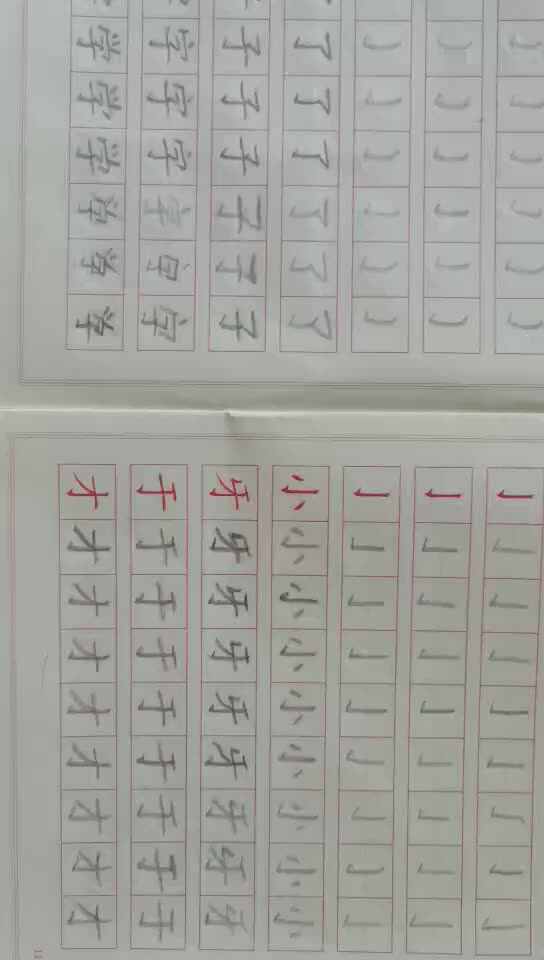 了了了了了了
子子子子子子
字字字字字字
学学学学学学
亅亅亅亅亅亅亅亅亅
亅亅亅亅亅亅亅亅亅
亅亅亅亅亅亅亅亅亅
小小小小小小小小小
牙牙牙牙牙牙牙牙牙
于于于于于于于于于
才才才才才才才才才
11